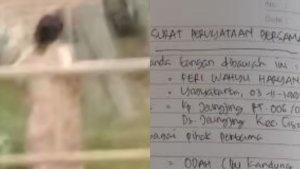 No
Date
SURAT PERNYATAAN BERSAMA
anda tangan dibawah ini :
FERI WAHYU HARYAN
Yogyakarta, 03-11-
Kp Jeungjing RT. 006/0
Ds. Jeungjing Kec. Cis
agai pihak pertama
ODAH (Ibu Kandung